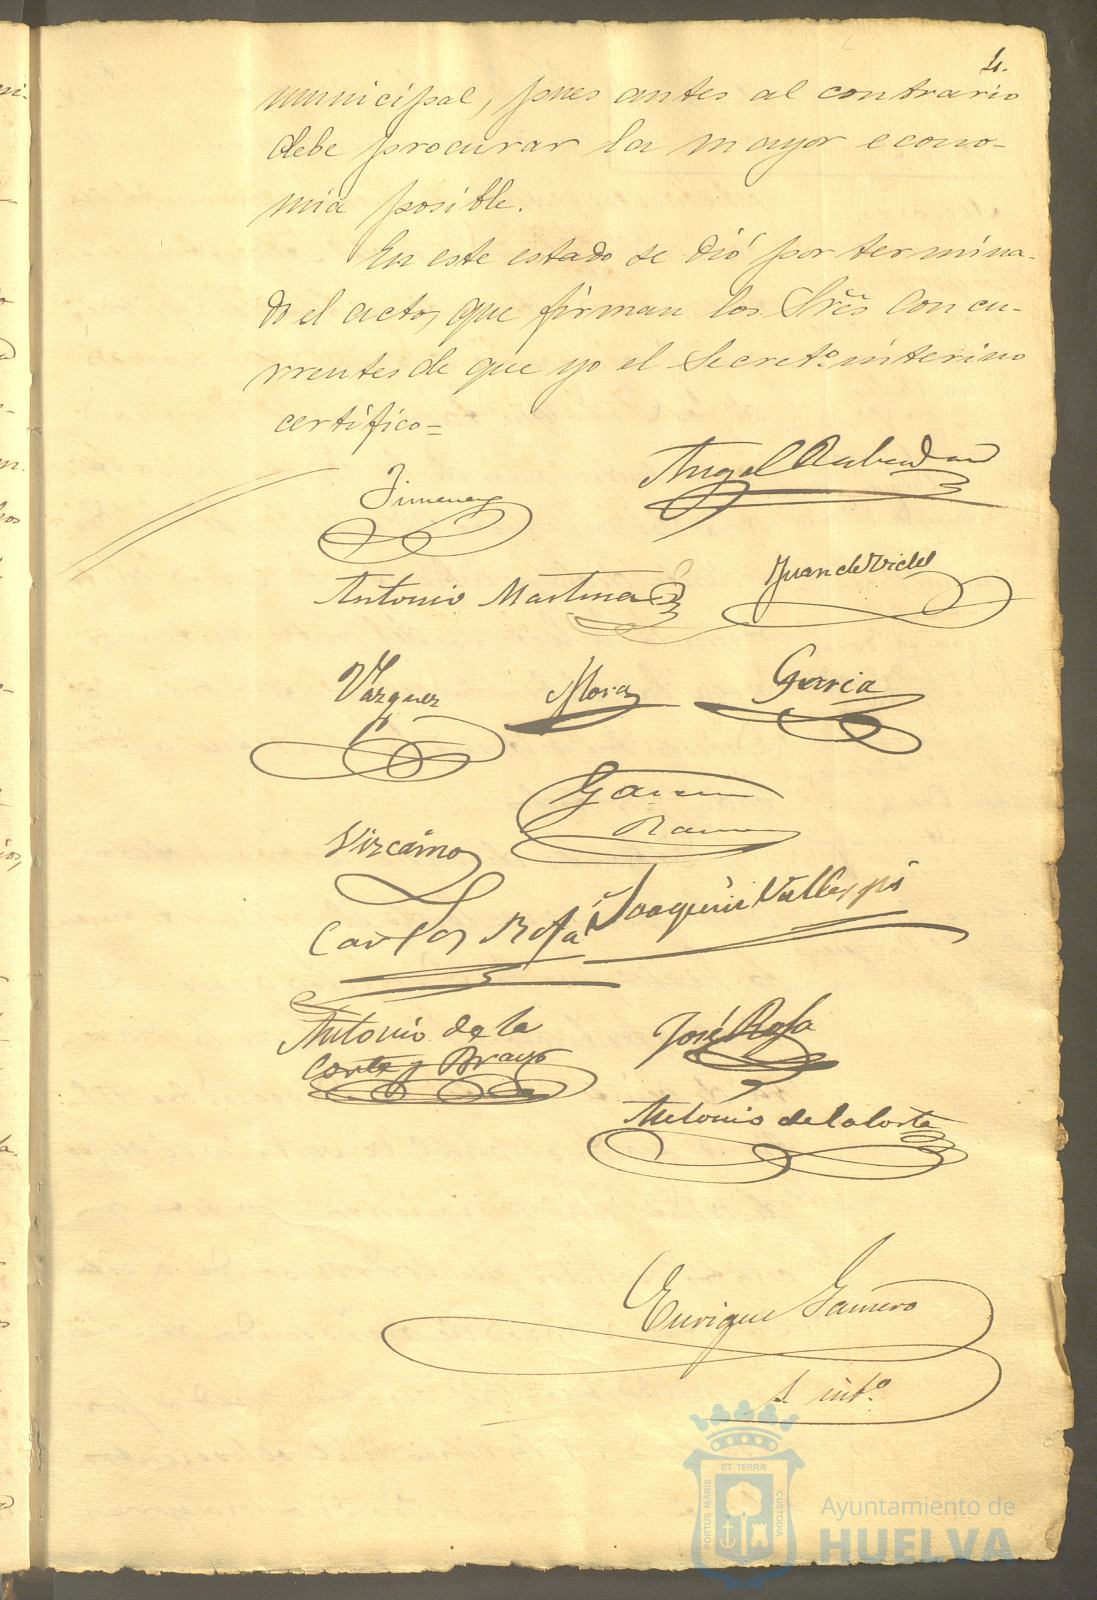 4.
municipal, pues antes al contrario
debe procurar la mayor econo-
mia posible.
En este estado se dió por termina-
do el acto, que firman los Sres concu-
rrentes de que yo el Secretº. interino
certifico=
Jimenez
Angel Rabadan
Antonio Martinez
Juan de Vides
Vazquez
Mora
Garcia
Garcia
Ramos
Vizcaino
Carlos Rofa
Joaquin Vallespi
Antonio de la
Corte y Bravo
José Rofa
Antonio de la Corte
Enrique Gamero
S. intº.
ET TERRÆ
PORTUS MARIS
CUSTODIA
Ayuntamiento de
HUELVA